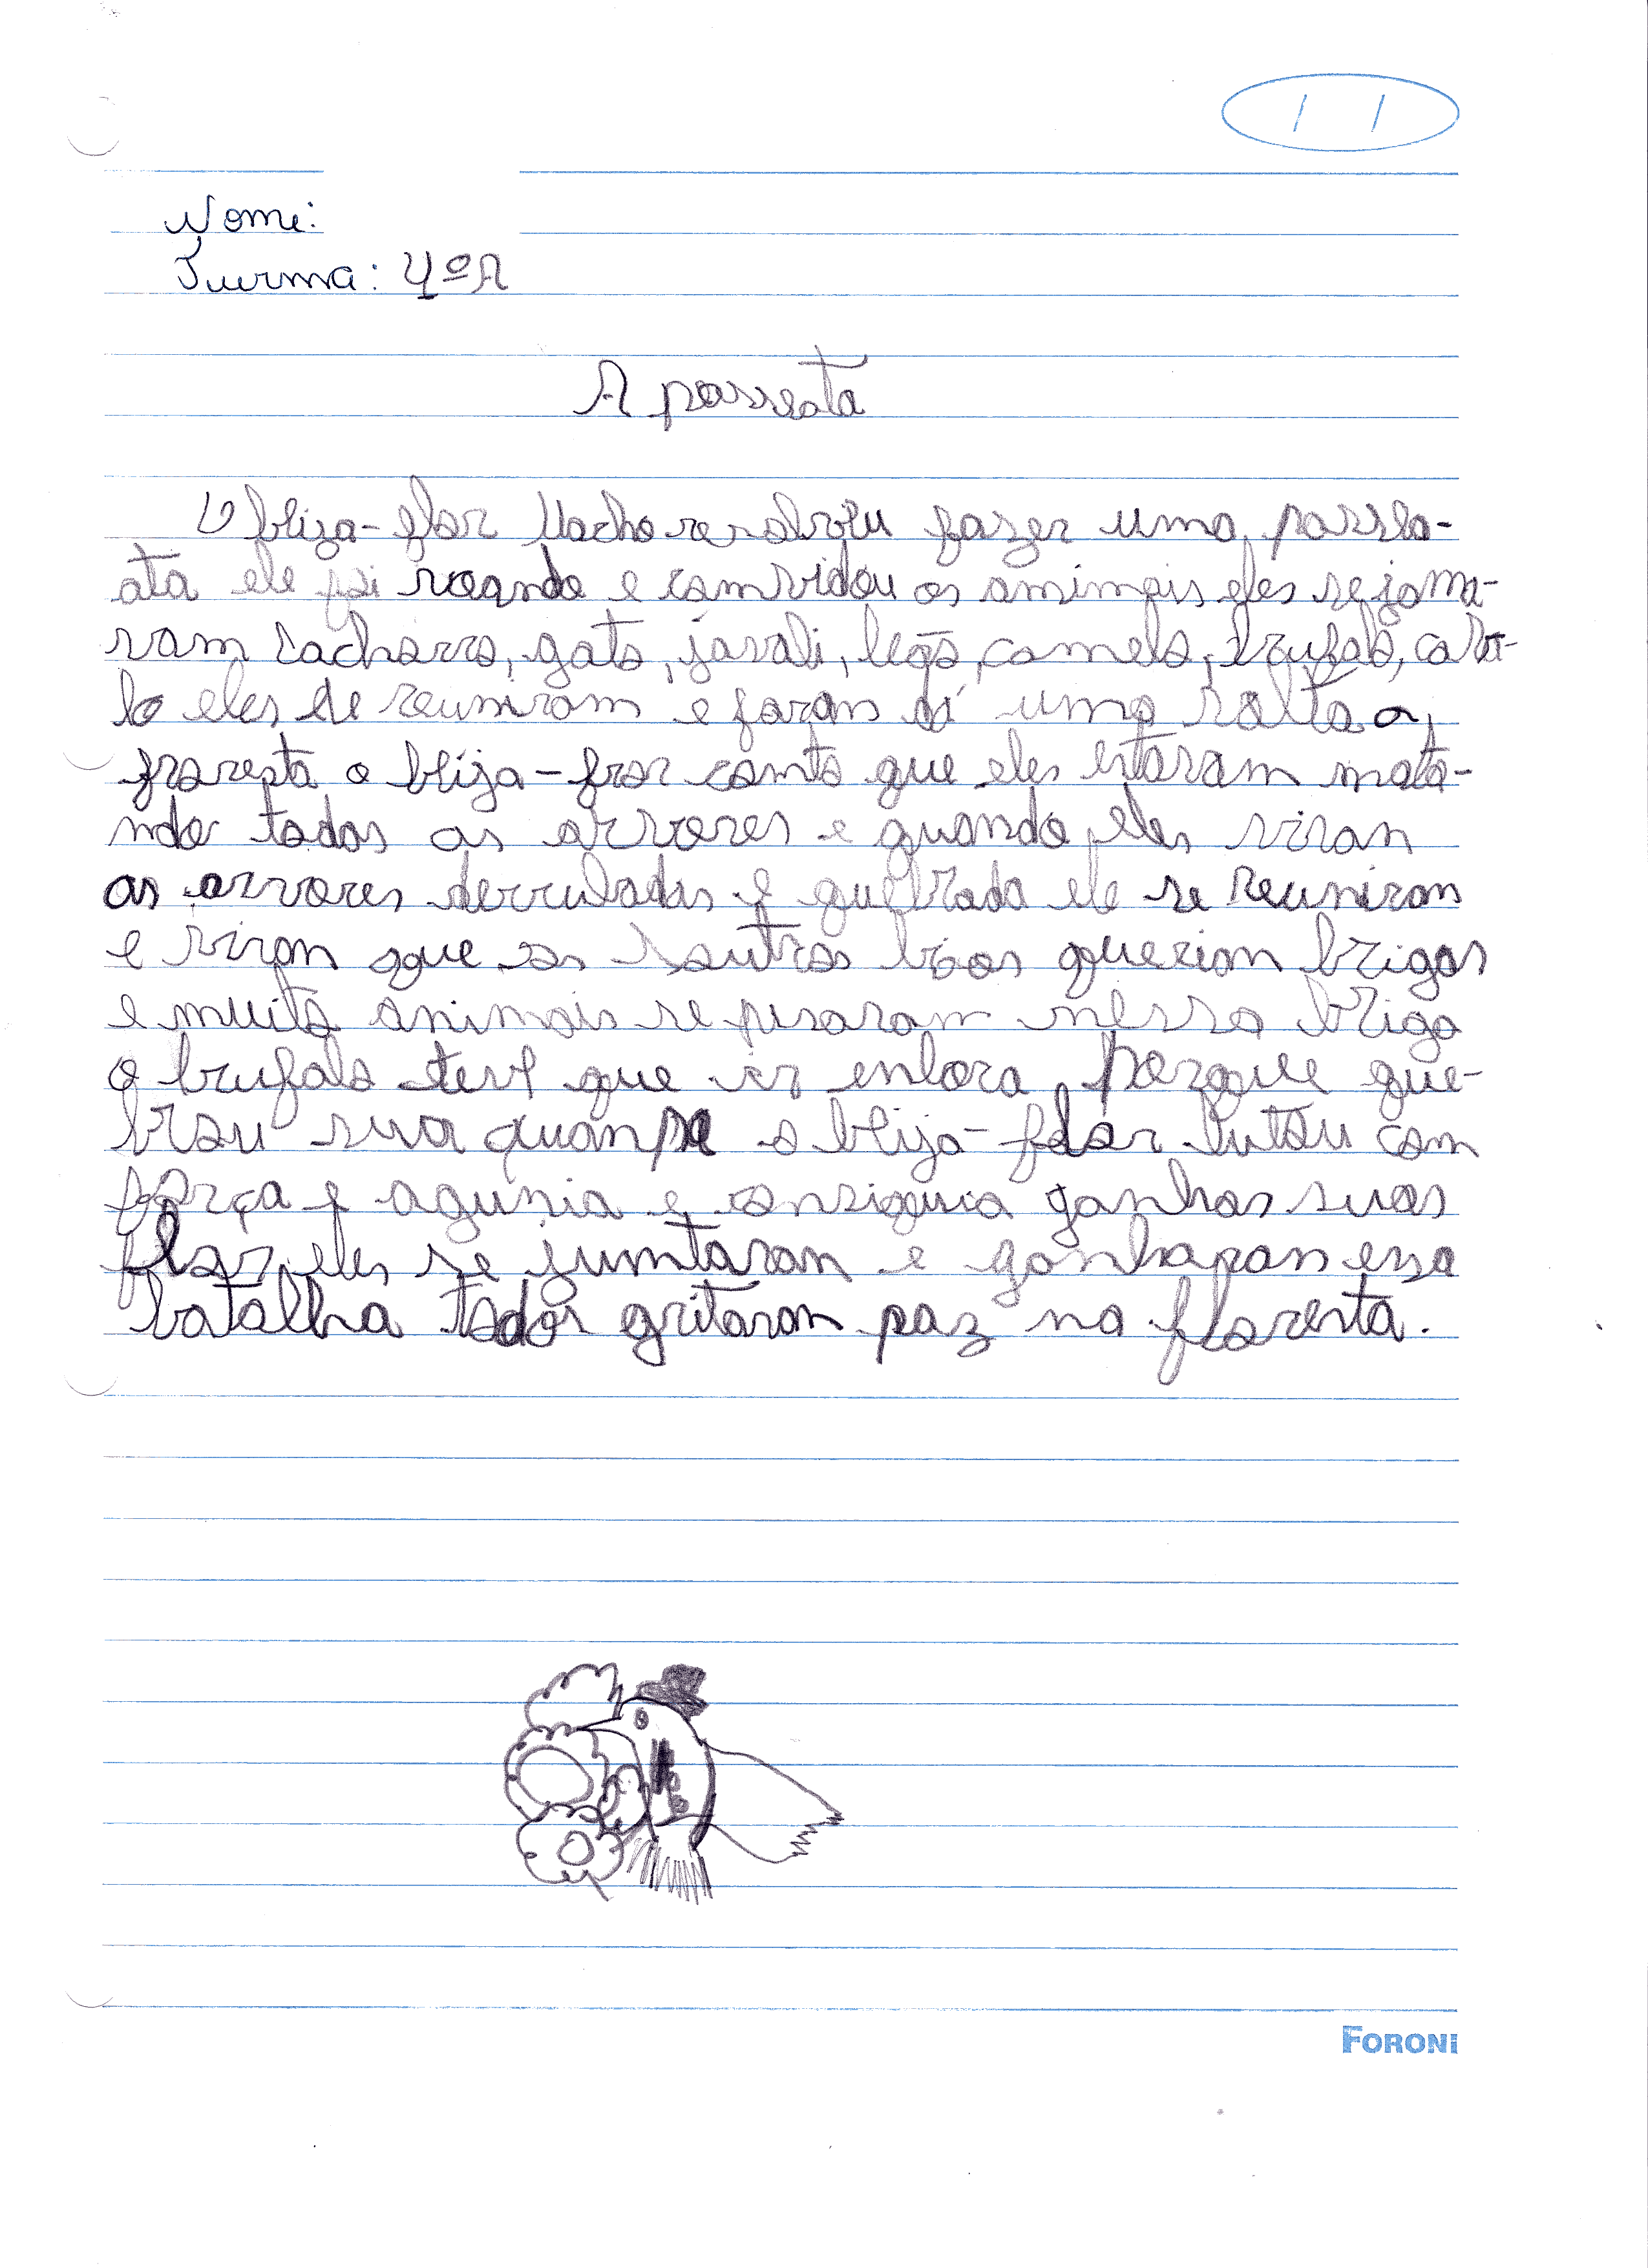 Nome:
Turma: 4º A
A passeata
O bliza-flor Macho resolveu fazer uma passea-
ata ele foi voando e comvidou os amimais eles se joma-
ram cachorro, gato, javali, leão, camelo, brufalo, cava-
lo eles se reuniram e foram dá uma volta a
froresta o blija-fror comto que eles estavam mata-
ndo todas as arvores e quando eles viran
as arvores derrubadas e quebrada ele se reuniram
e viron que os outros bios querion brigas
e muito animais se pisaram nessa briga
o brufalo teve que ir enbora porque que-
brou sua o blija-flor lutou com
força e agunia e consiguia ganhas suas
flor eles se jumtaran e ganharan essa
batalha todos gritaram paz na floresta.
FORONI